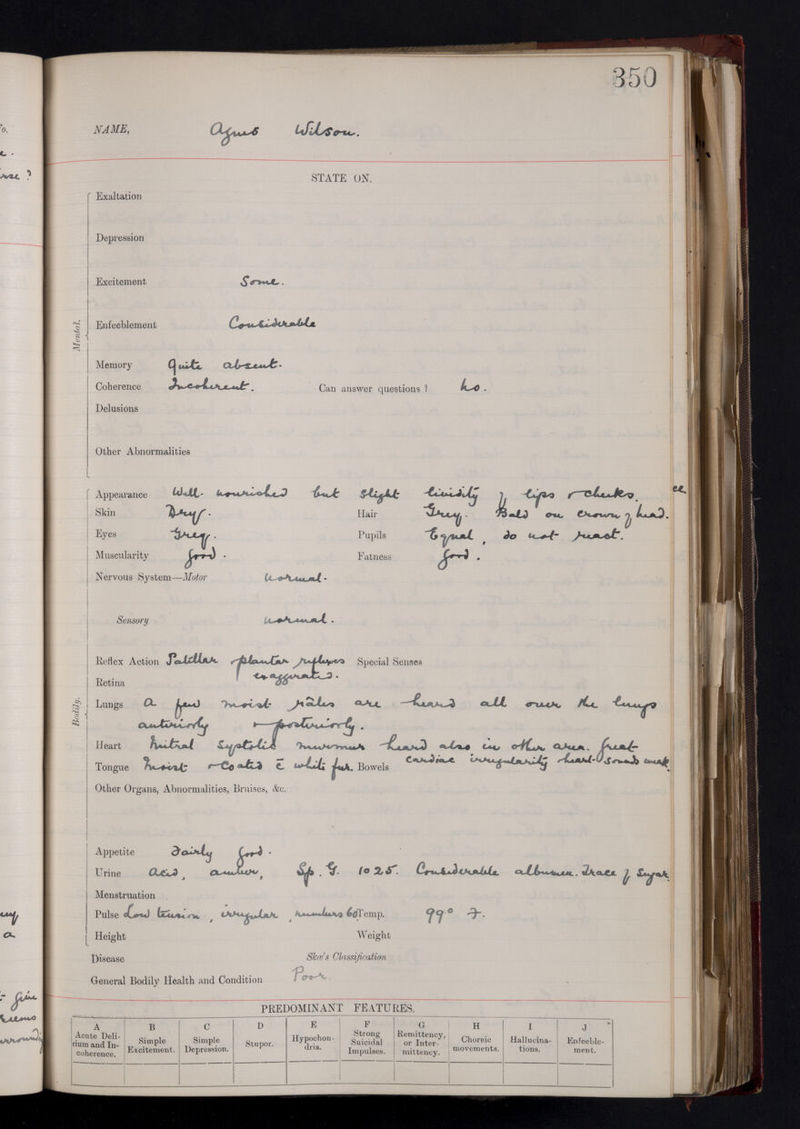 350
NAME, Agnes Wilson.
STATE ON.
Mental.
Exaltation
Depression
Excitement Some.
Enfeeblement Considerable
Memory Quite absent.
Coherence Incoherent. Can answer questions? No.
Delusions
Other Abnormalities
Bodily.
Appearance Well-nourished but slight lividity of lips & cheeks.
Skin Dry. Hair Grey. Bald on crown of head.
Eyes Grey. Pupils Equal, do not react.
Muscularity good. Fatness good.
Nervous System—Motor normal.
Sensory normal.
Reflex Action Patellar & plantar reflexes Special Senses
exaggerated.
Retina
Lungs A few moist râles are heard all over the lungs
anteriorly & posteriorly.
Heart Mitral Systolic murmur heard also in other area. Great
cardiac irregularity & heart sounds weak.
Tongue Moist & coated c̄ white fur. Bowels
Other Organs, Abnormalities, Bruises, &c.
Appetite Fairly good.
Urine Acid, amber, Sp. G. 1025. Considerable albumen. Trace of Sugar.
Menstruation
Pulse Low tension, irregular, numbers 60 Temp. 99° F.
Height Weight
Disease Skæ's Classification
General Bodily Health and Condition Poor.
PREDOMINANT FEATURES.
A B C D E F G H I J
Acute Delirium and Incoherence. Simple Excitement. Simple Depression. Stupor. Hypochondria. Strong Suicidal Impulses. Remittency, or Intermittency. Choreic movements. Hallucinations. Enfeeblement.